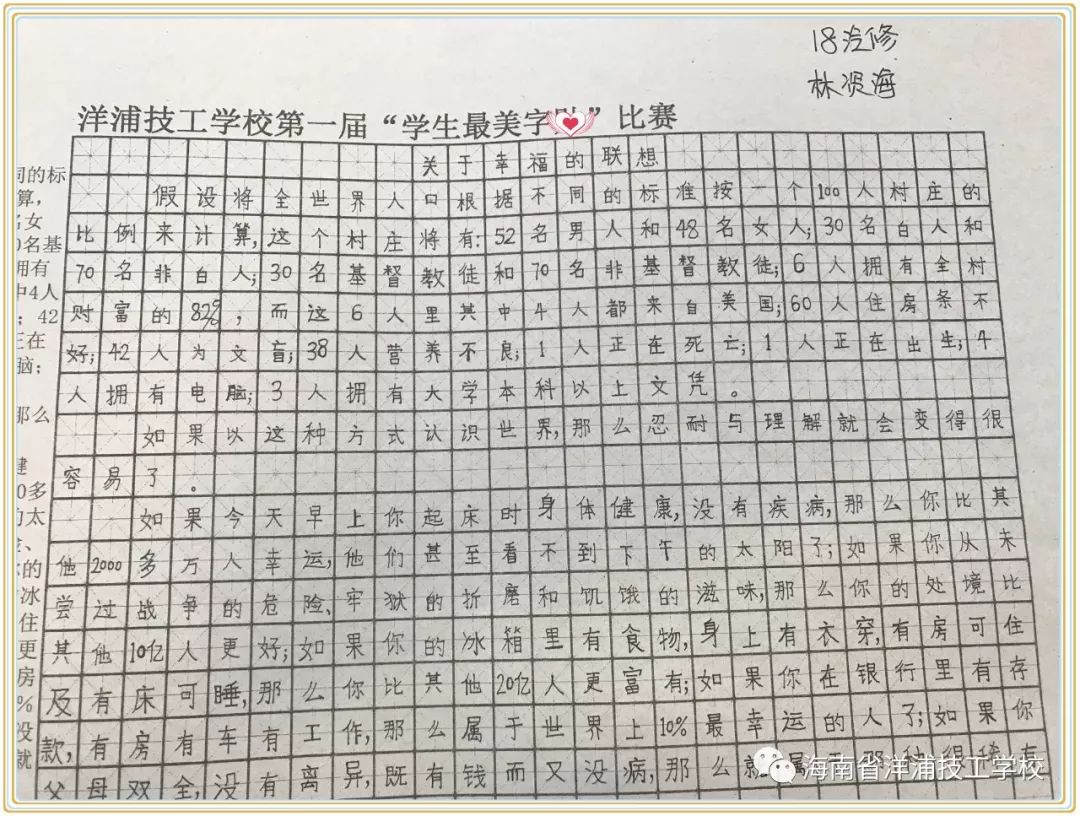 18汽修
林资海
洋浦技工学校第一届“学生最美字”比赛
关于幸福的联想
假设将全世界人口根据不同的标准按一个100人村庄的
比例来计算,这个村庄将有:52名男人和48名女人;30名白人和
70名非白人;30名基督教徒和70名非基督教徒;6人拥有全村
财富的82%;而这6人里其中4人都来自美国;60人住房条不
好;42人为文盲;38人营养不良;1人正在死亡;1人正在出生;4
人拥有电脑;3人拥有大学本科以上文凭。
如果以这种方式认识世界,那么忍耐与理解就会变得很
容易了。
如果今天早上你起床时身体健康,没有疾病,那么你比其
他2000多万人幸运,他们甚至看不到下午的太阳了;如果你从未
尝过战争的危险、牢狱的折磨和饥饿的滋味,那么你的处境比
其他10亿人更好;如果你的冰箱里有食物,身上有衣穿,有房可住
及有床可睡,那么你比其他20亿人更富有;如果你在银行里有存
款,有房有车有工作,那么属于世界上10%最幸运的人了;如果你
父母双全,没有离异,既有钱而又没病,那么就属于那种很稀有
同的标
算,
名女
0名基
拥有
中4人
;42
正在
脑;
那么
健
0多
的太
、
的
冰
住
更
房
%
没
就
海南省洋浦技工学校